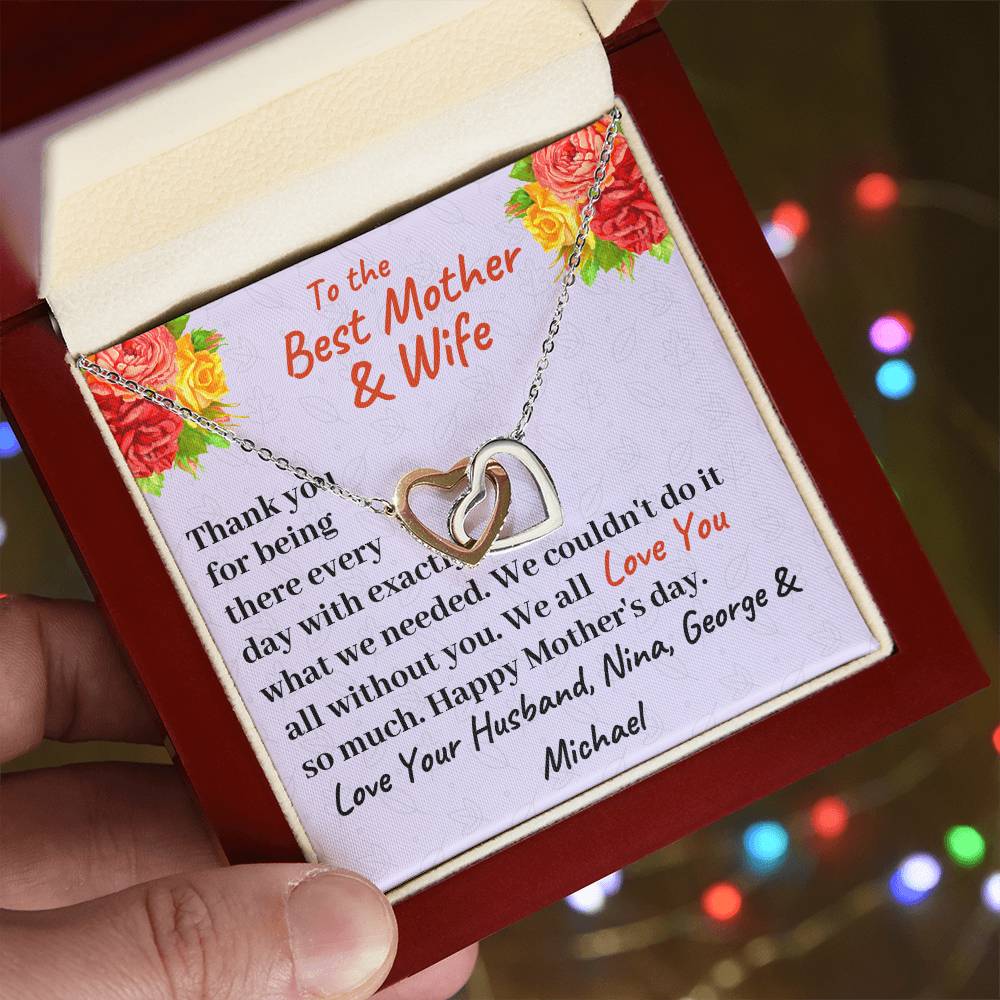 To the
Best Mother
& Wife
Thank you
for being
there every
day with exactly
what we needed. We couldn't do it
all without you. We all Love You
so much. Happy Mother's day.
Love Your Husband, Nina, George &
Michael